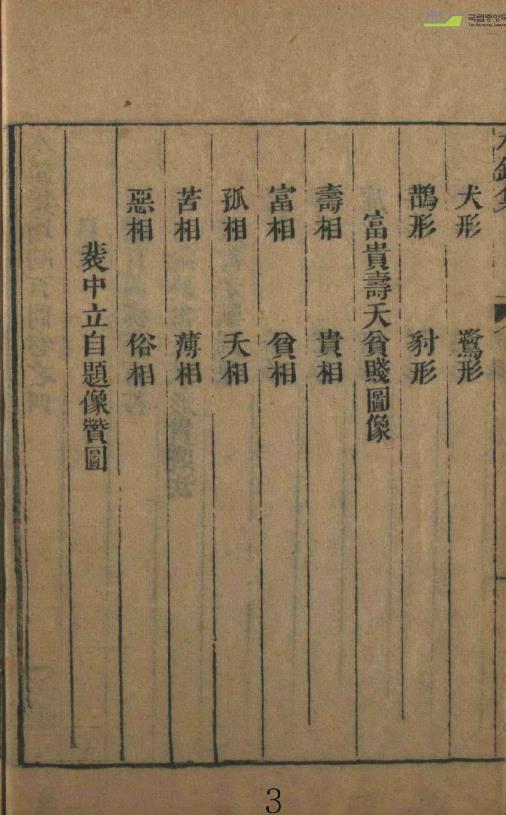 犬形 鷺形
鵲形 豺形
富貴壽夭貧賤圖像
壽相 貴相
富相 貧相
孤相 夭相
苦相 薄相
惡相 俗相
裴中立自題像贊圖
3